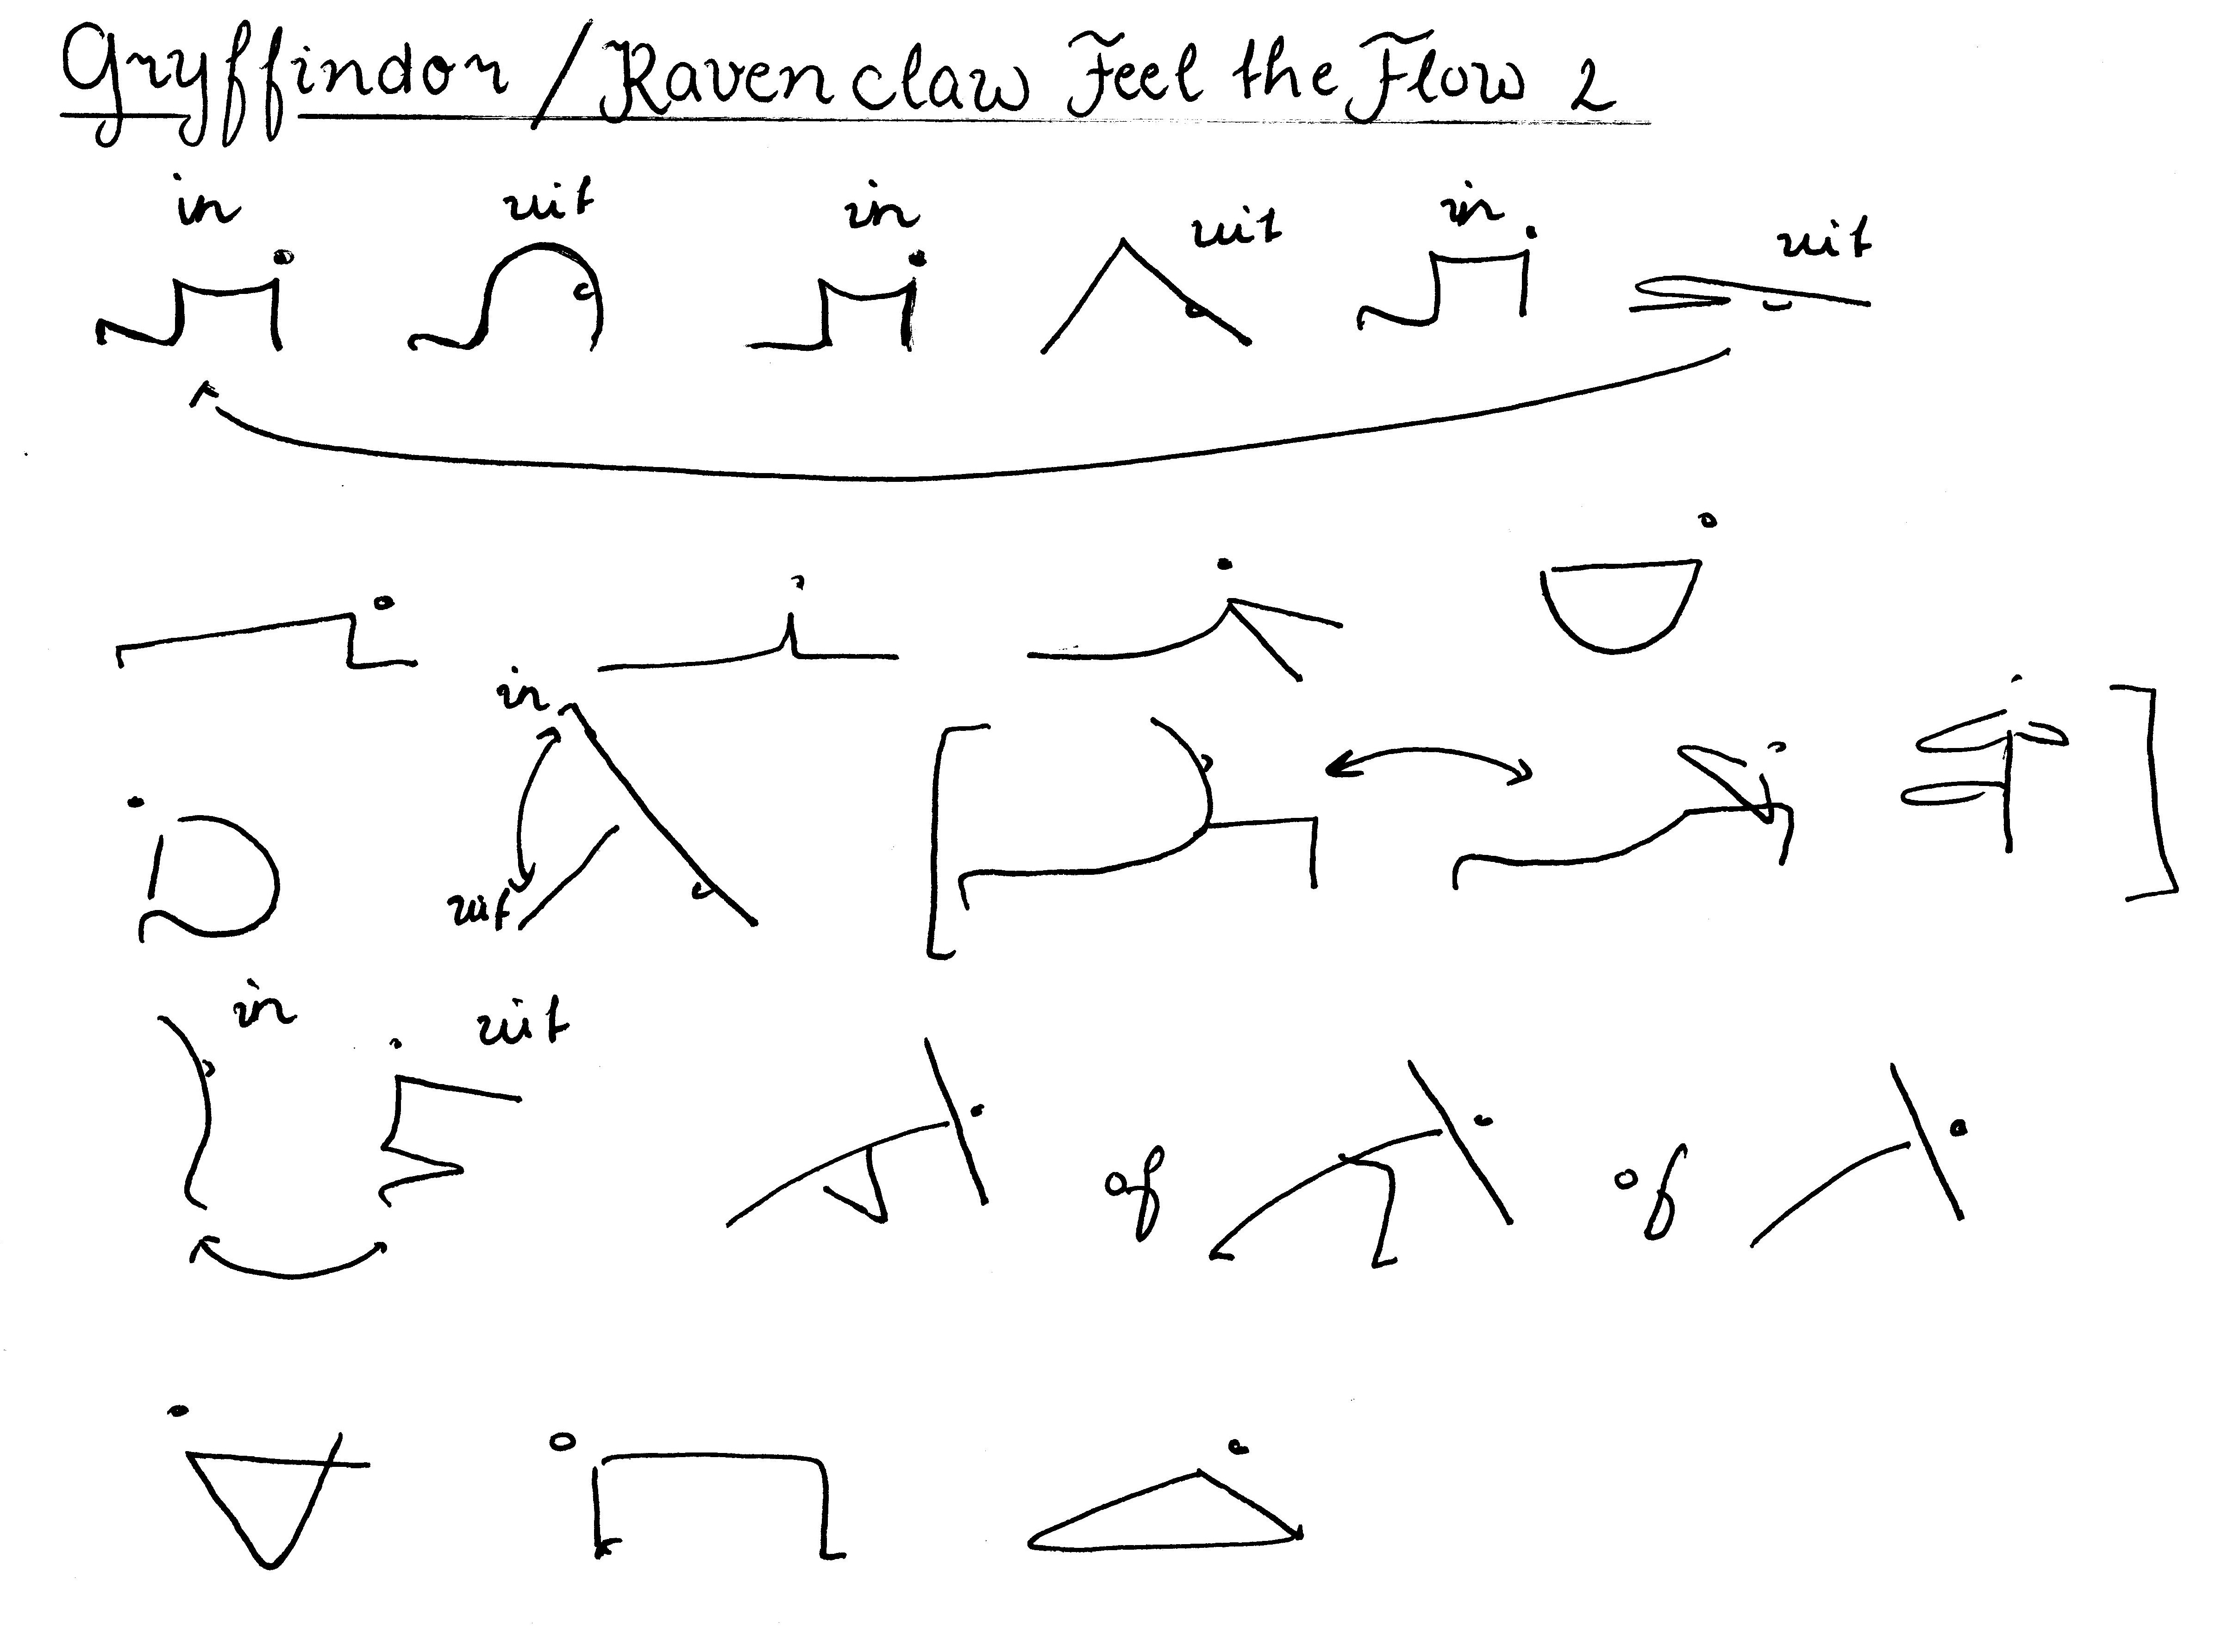 Gryffindor / Ravenclaw Feel the Flow 2
in uit in uit in uit
in
uit
in uit
of of